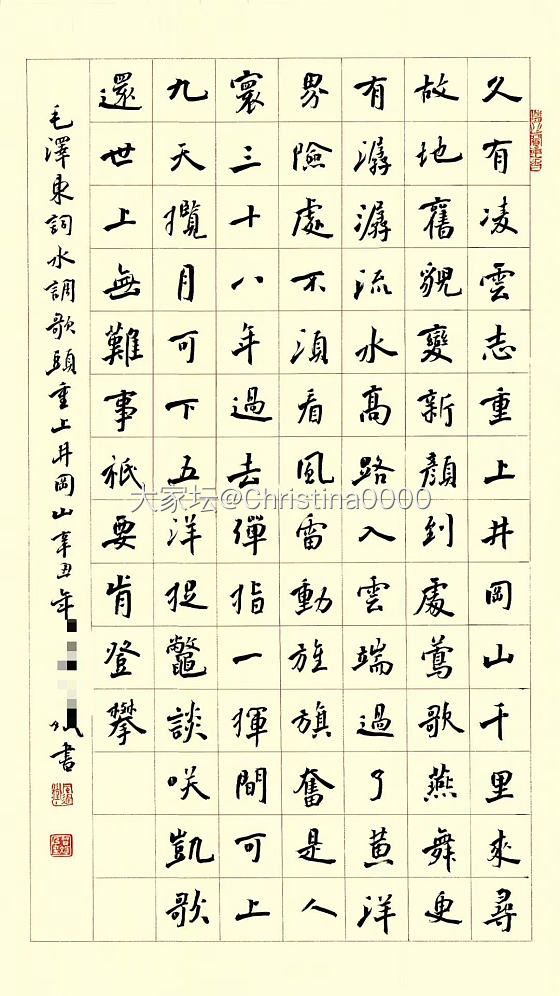 久有凌雲志重上井岡山千里來尋
故地舊貌變新顏到處鶯歌燕舞更
有潺潺流水高路入雲端過了黃洋
界險處不須看風雷動旌旗奮是人
寰三十八年過去彈指一揮間可上
九天攬月可下五洋捉鼈談咲凱歌
還世上無難事祇要肯登攀
毛澤東詞水調歌頭重上井岡山辛丑年書
大家坛@Christina0000